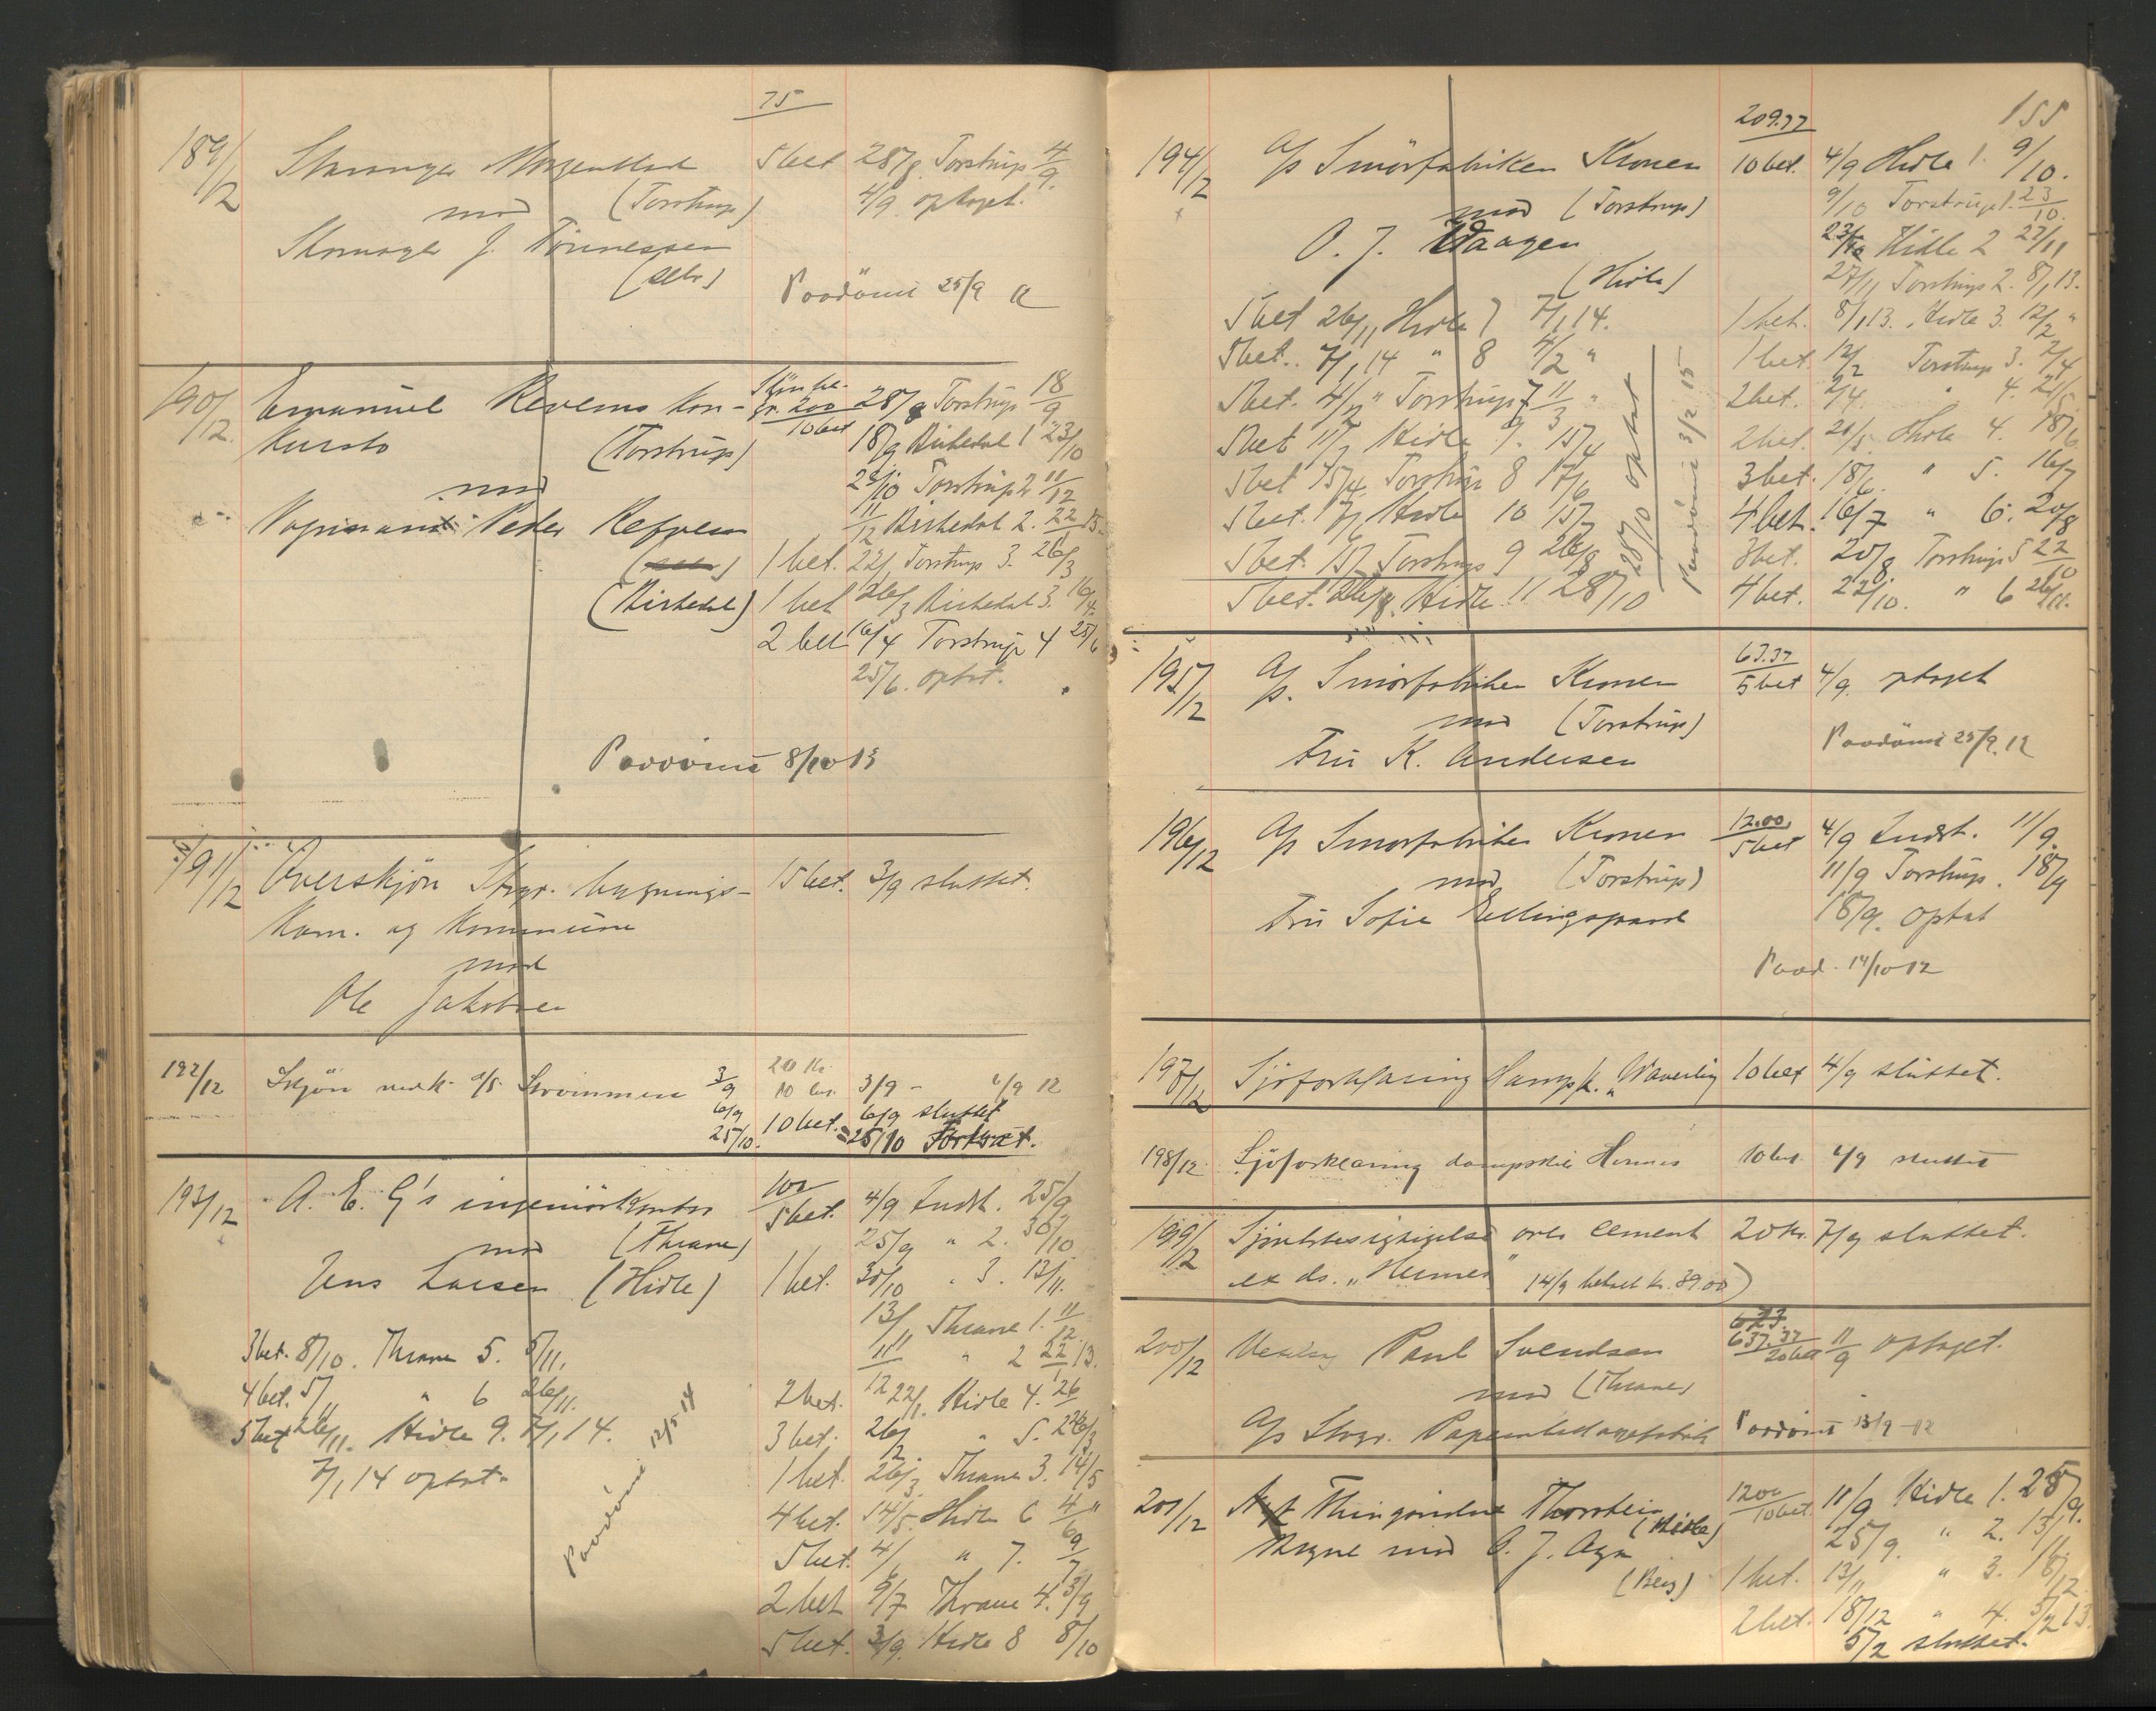 75
189/12 Stavanger Morgenblad 5 bet 28/8 Torstrup 4/9.
mod (Torstrup) 4/9. optaget.
J. Tönnessen
(selv) Paadömt 25/9 12
190/12. Emanuel kon- 200 10 bet 28/8 Torstrup 18/9
kursbo (Torstrup) 18/9 Birkedal 1 23/10
mod 23/10 Torstrup 2 11/12
Vognmand Peder 11/12 Birkedal 2. 22/1 13.
(selv) 1 bet. 22/1 Torstrup 3. 26/3
(Birkedal) 1 bet 26/3 Birkedal 3. 16/4.
2 bet 16/4 Torstrup 4 25/6
25/6. optat.
Paadömt 8/10 13
191/12 Overskjön Svgr. bygnings- 15 bet. 3/9 sluttet.
kom. og kommune
mod
Ole Jakobsen
192/12 Skjön vedk. a/s. 3/9 20 kr. 10 bet. 3/9 - 6/9 12
6/9 10 bet. 6/9 sluttet
25/10. 25/10
193/12 A. E. G's ingeniörkontor 100 5 bet. 4/9 Indst. 25/9
mod (Thrane) 25/9 " 2. 30/10
Jens Larsen (Hidle) 1 bet. 30/10 " 3. 13/11.
13/11 Thrane 1. 11/12.
3 bet. 8/10. Thrane 5. 5/11. 11/12 " 2 22/1 13.
4 bet. 5/11 " 6 26/11. 2 bet. 22/1. Hidle 4. 26/2
5 bet 26/11. Hidle 9. 7/1 14. 3 bet. 26/2 " 5. 26/3
7/1 14 optat. 1 bet. 26/3. Thrane 3. 14/5
Paadömt 12/5 14
4 bet. 14/5. Hidle 6 4/6 "
5 bet. 4/6 " 7. 9/7
2 bet 9/7 Thrane 4. 3/9
5 bet. 3/9. Hidle 8 8/10
155
209.37
194/12 A/s Smörfabriken Kronen 10 bet. 4/9 Hidle 1. 9/10.
mod (Torstrup) 9/10 Torstrup 1. 23/10.
O. J. Waagen 23/10 Hidle 2 27/11
(Hidle) 27/11 Torstrup 2. 8/1 13.
5 bet 26/11 Hidle 7 7/1 14. 1 bet. 8/1 13. Hidle 3. 12/2 "
5 bet. 7/1 14 " 8 4/2 " 1 bet. 12/2 Torstrup 3. 2/4
5 bet. 4/2 " Torstrup 7 11/3 " 2 bet. 2/4. " 4. 21/5.
5 bet 11/3 Hidle 9. 15/4 2 bet. 21/5. Hidle 4. 18/6
5 bet 15/4. Torstrup 8 17/6 3 bet. 18/6. " 5. 16/7
5 bet. 17/6 Hidle 10 15/7 4 bet. 16/7 " 6. 20/8
5 bet. 15/7 Torstrup 9 26/8 3 bet. 20/8 Torstrup 5 22/10
5 bet. 26/8. Hidle 11 28/10 4 bet. 22/10. " 6 26/11.
28/10 optat
Paadömt 3/2 15
195/12 A/s. Smörfabriken Kronen 63.37 5 bet 4/9. optaget
mod (Torstrup)
Fru K. Andersen Paadömt 25/9. 12
196/12 A/s Smörfabriken Kronen 12.00 5 bet 4/9 Indst. 11/9.
mod (Torstrup) 11/9 Torstrup. 18/9
Fru Sofie 18/9. optat
Paad. 14/10 12
197/12 Sjöforklaring "Waverley 10 bet 4/9 sluttet.
198/12 Sjöforklaring dampskib Hermes 10 bet. 6/9 sluttet
199/12 over cement 20 kr. 7/9 sluttet.
ex ds. "Hermes" 14/9 betalt kr. 39.00)
200/12 Paul Svendsen 623. 637.37 20 bet 11/9 optaget.
mod (Thrane)
A/s Svgr. Paadömt 13/9 - 12
201/12 Thorstein 1200 10 bet. 11/9 Hidle 1. 25/9.
(Hidle)
mod O. J. 25/9. " 2. 13/11.
(Berg) 1 bet. 13/11 " 3. 18/12.
2 bet. 18/12 " 4. 5/2 13.
5/2 sluttet.